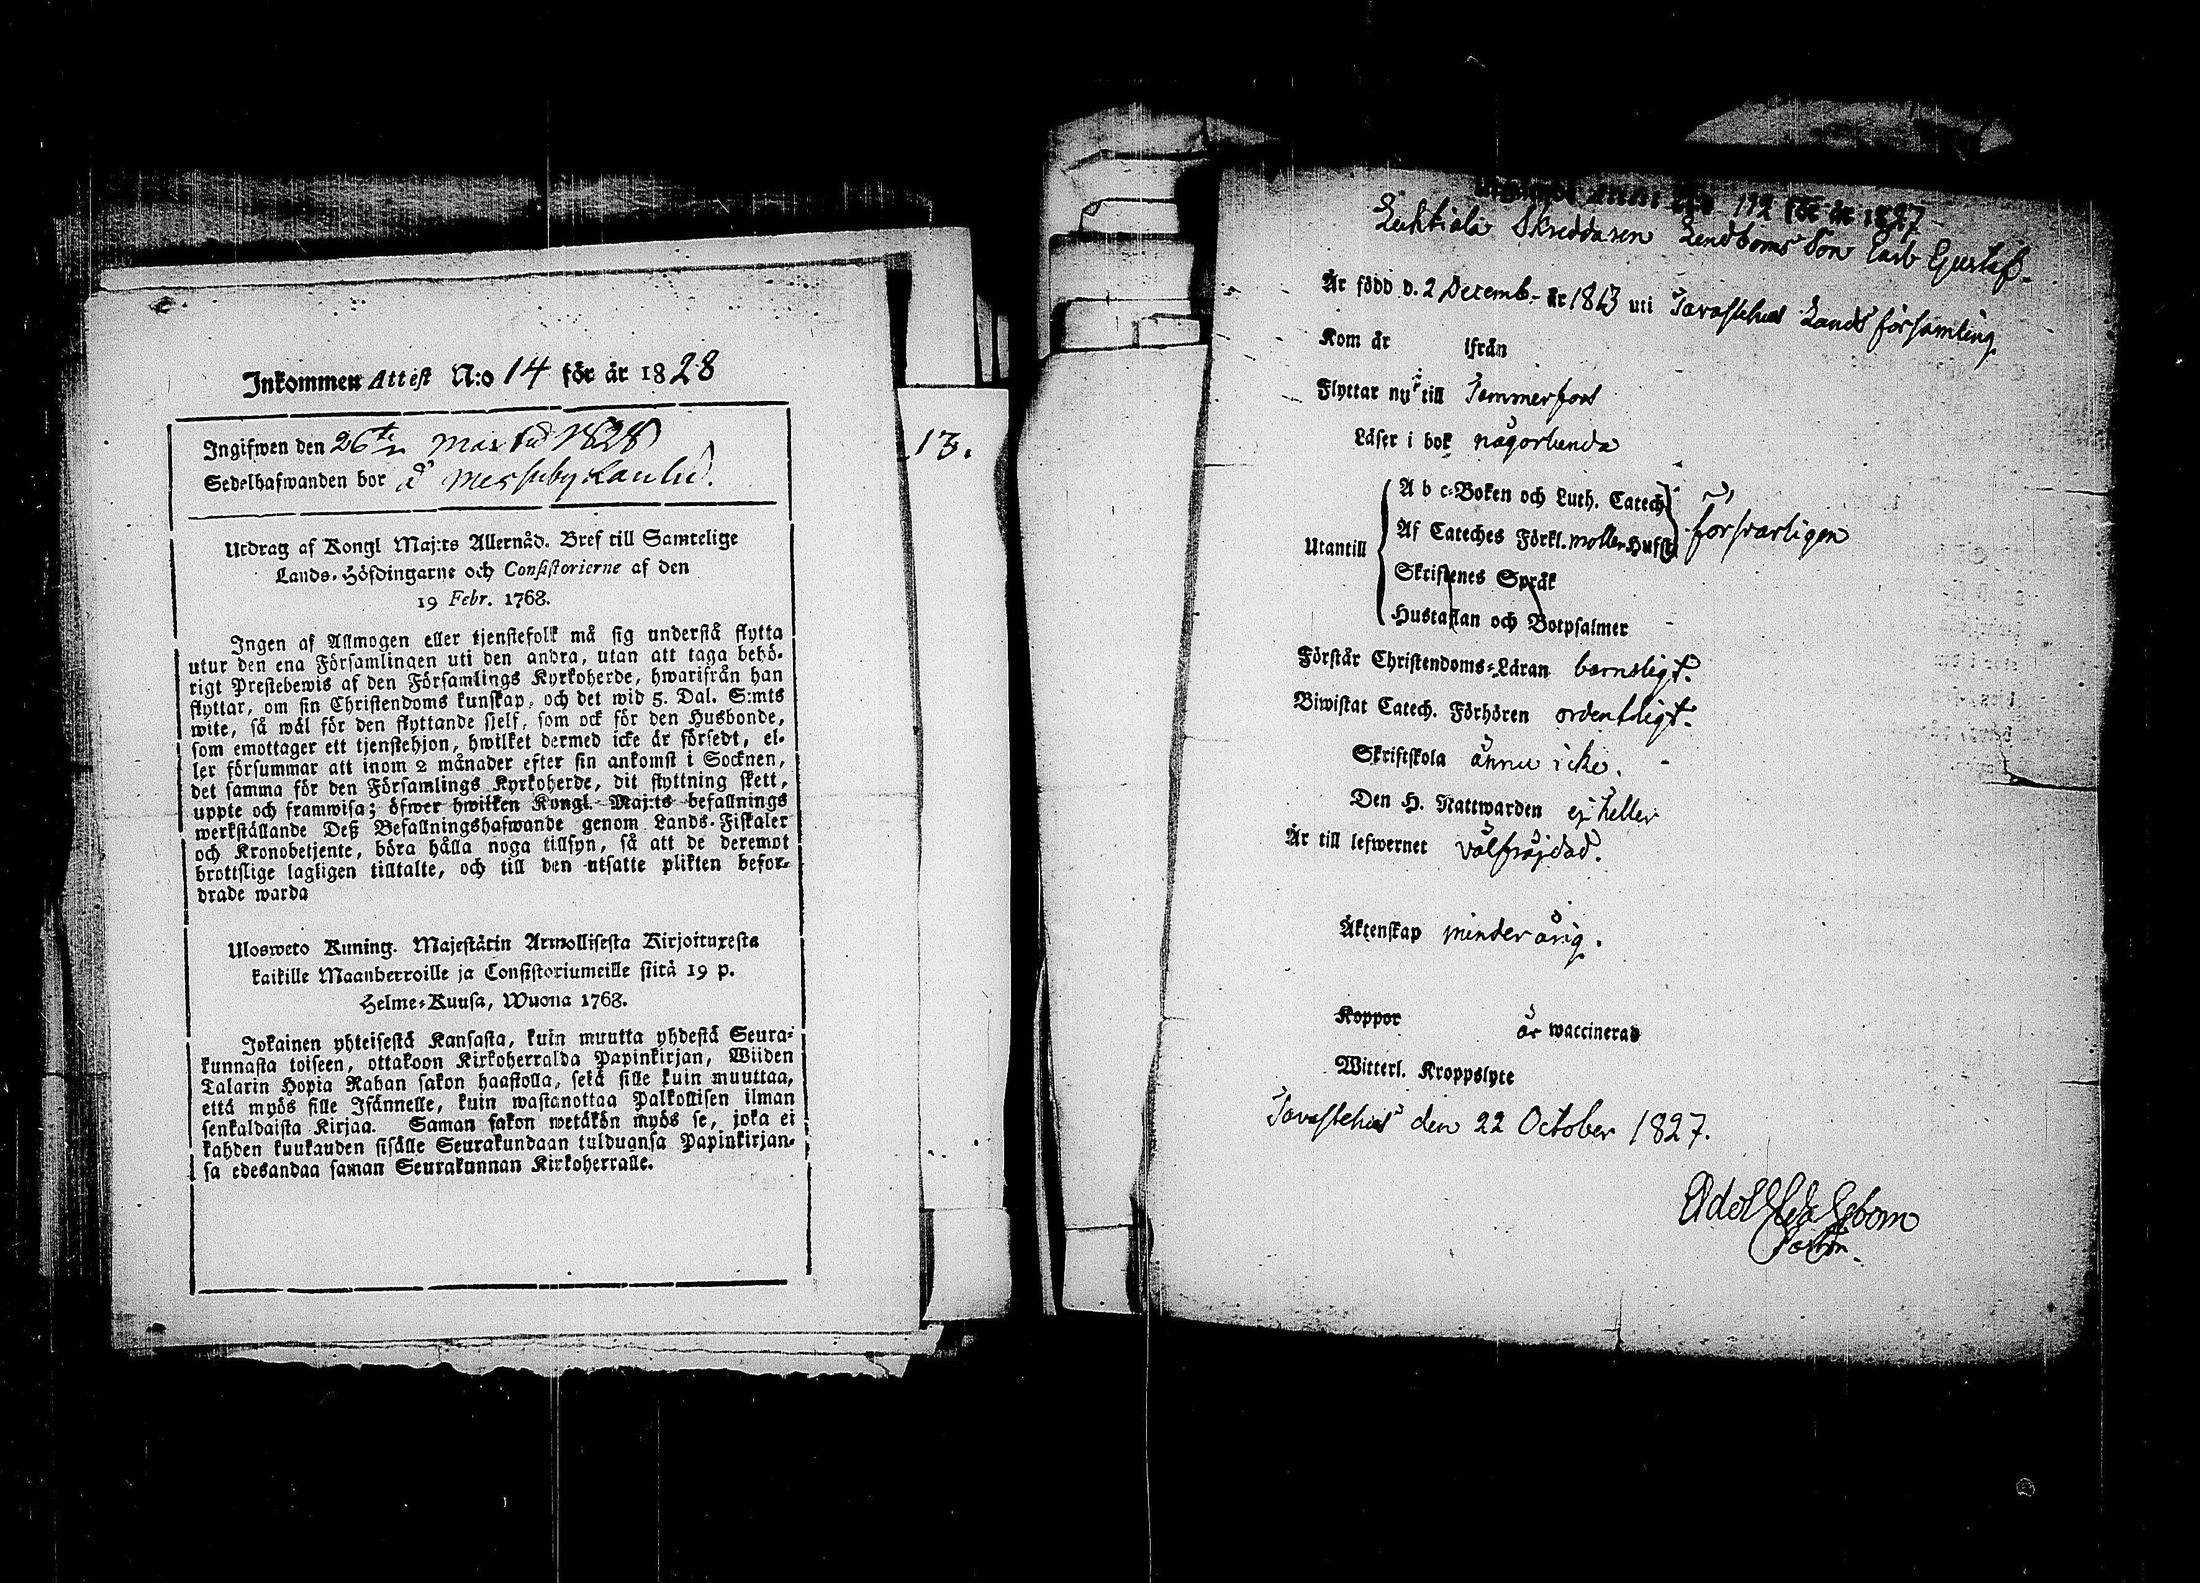 Inkommen Attest N:o 14 för år 1828
Ingifwen den 26te Martii 1828
Sedelhafwanden bor å Messuby
Utdrag af Kongl Maj:ts Allernåd. Bref till Samtelige
Lands-Höfdingarne och Consistorierne af den
19 Febr. 1768.
Ingen af Allmogen eller tjenstefolk må sig understå flytta
utur den ena Församlingen uti den andra, utan att taga behö-
rigt Prestebewis af den Församlings Kyrkoherde, hwarifrån han
flyttar, om sin Christendoms kunskap, och det wid 5. Dal. S:mts
wite, så wäl för den flyttande sjelf, som ock för den Husbonde,
som emottager ett tjenstehjon, hwilket dermed icke är försedt, el-
ler försummar att inom 2 månader efter sin ankomst i Socknen,
det samma för den Församlings Kyrkoherde, dit flyttning skett,
uppte och framwisa; öfwer hwilken Kongl. Maj:ts befallnings
werkställande Deß Befallningshafwande genom Lands-Fiskaler
och Kronobetjente, böra hålla noga tillsyn, så att de deremot
brottslige lagligen tilltalte, och till den utsatte plikten befor-
drade warda
Ulosweto Kuning. Majestätin Armollisesta Kirjoituxesta
kaikille Maanherroille ja Consistoriumeille siitä 19 p.
Helme-Kuusa, Wuona 1768.
Jokainen yhteisestä Kansasta, kuin muutta yhdestä Seura-
kunnasta toiseen, ottakoon Kirkoherralda Papinkirjan, Wiiden
Talarin Hopia Rahan sakon haastolla, sekä sille kuin muuttaa,
että myös sille Isännelle, kuin wastanottaa Palkollisen ilman
senkaldaista Kirjaa. Saman sakon wetäkön myös se, joka ei
kahden kuukauden sisälle Seurakundaan tulduansa Papinkirjan-
sa edesandaa saman Seurakunnan Kirkoherralle.
13.
112 för år 1827
Luhtiala Skreddaren Lindboms Son Carl Gustaf.
Är född d. 2 Decemb. år 1813 uti Tavastehus Lands församling
Kom år ifrån
Flyttar nu till Tammerfors
Läser i bok någorlunda
A b c-Boken och Luth. Catech
Af Cateches Förkl. Hufst
försvarligen
Utantill
Skriftenes Språk
Hustaflan och Botpsalmer
Förstår Christendoms-Läran barnsligt.
Biwistat Catech. Förhören ordentligt.
Skriftskola ännu icke.
Den H. Nattwarden ej heller
Är till lefwernet välfräjdad.
Äktenskap minderårig.
Koppor är waccinerad
Witterl. Kroppslyte
Tavastehus den 22 October 1827.
Adolf
Pastor.